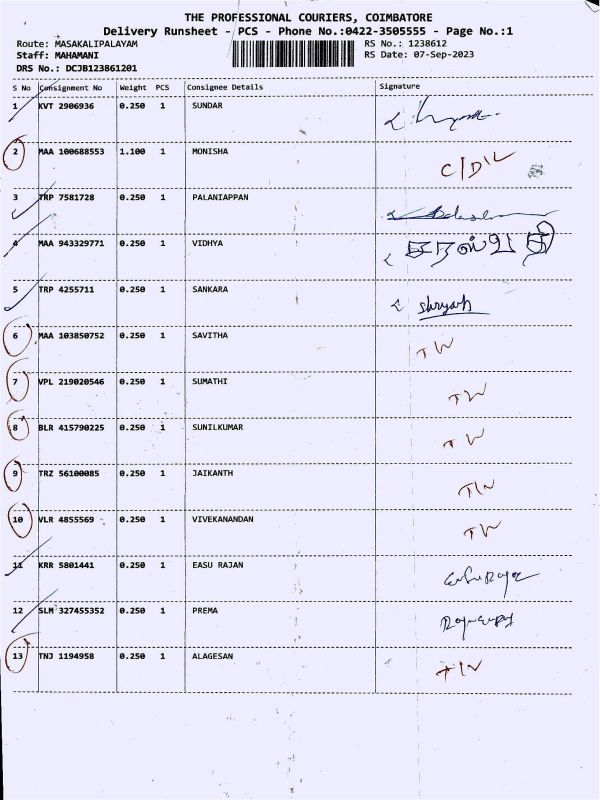 THE PROFESSIONAL COURIERS, COIMBATORE
Delivery Runsheet - PCS - Phone No.:0422-3505555 - Page No.:1
Route: MASAKALIPALAYAM RS No.: 1238612
Staff: MAHAMANI RS Date: 07-Sep-2023
DRS No.: DCJB123861201
S No Consignment No Weight PCS Consignee Details Signature
1 KVT 2906936 0.250 1 SUNDAR
2 MAA 100688553 1.100 1 MONISHA C/D/L
3 TRP 7581728 0.250 1 PALANIAPPAN
4 MAA 943329771 0.250 1 VIDHYA
5 TRP 4255711 0.250 1 SANKARA
6 MAA 103850752 0.250 1 SAVITHA TW
7 VPL 219020546 0.250 1 SUMATHI TW
8 BLR 415790225 0.250 1 SUNILKUMAR TW
9 TRZ 56100085 0.250 1 JAIKANTH TIN
10 VLR 4855569 0.250 1 VIVEKANANDAN TW
11 KRR 5801441 0.250 1 EASU RAJAN
12 SLM 327455352 0.250 1 PREMA
13 TNJ 1194958 0.250 1 ALAGESAN TIN